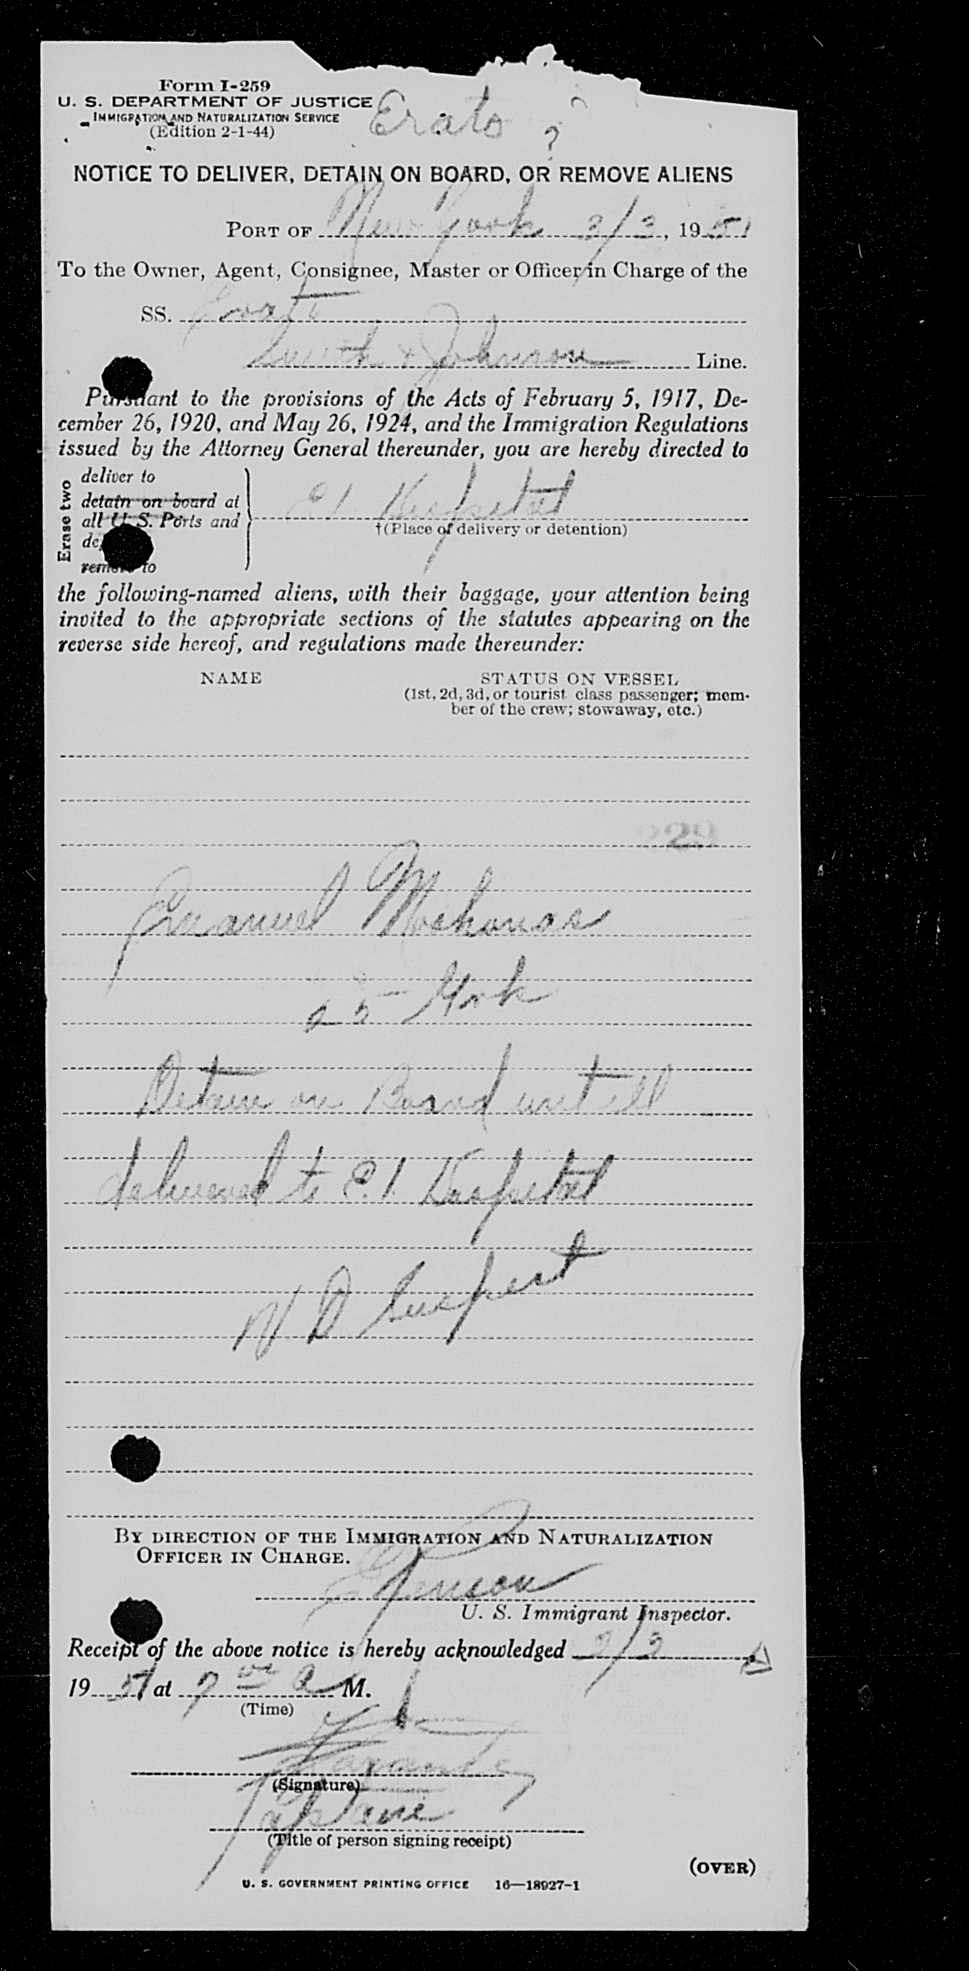 Form I-259
U. S. DEPARTMENT OF JUSTICE
IMMIGRATION AND NATURALIZATION SERVICE
(Edition 2-1-44)
Erato ?
NOTICE TO DELIVER, DETAIN ON BOARD, OR REMOVE ALIENS
PORT OF New York 3/3, 1951
To the Owner, Agent, Consignee, Master or Officer in Charge of the
SS. Erato
Smith & Johnson Line.
Pursuant to the provisions of the Acts of February 5, 1917, De-
cember 26, 1920, and May 26, 1924, and the Immigration Regulations
issued by the Attorney General thereunder, you are hereby directed to
Erase two
deliver to
detain on board at
all U. S. Ports and
remove to
E.I. Hospital
†(Place of delivery or detention)
the following-named aliens, with their baggage, your attention being
invited to the appropriate sections of the statutes appearing on the
reverse side hereof, and regulations made thereunder:
NAME STATUS ON VESSEL
(1st, 2d, 3d, or tourist class passenger; mem-
ber of the crew; stowaway, etc.)
29
Emanuel
25
Detain on Board untill
delivered to E.I. Hospital
V D Suspect
BY DIRECTION OF THE IMMIGRATION AND NATURALIZATION
OFFICER IN CHARGE.
U. S. Immigrant Inspector.
Receipt of the above notice is hereby acknowledged 3/3
1951 at 9 00 A M.
(Time)
(Signature)
(Title of person signing receipt)
(OVER)
U. S. GOVERNMENT PRINTING OFFICE 16—18927-1